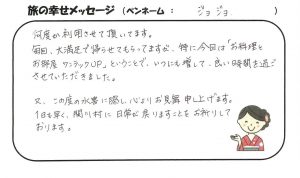 旅の幸せメッセージ（ペンネーム：ジョジョ）
何度か利用させて頂いてます。
毎回、大満足で帰らせてもらってますが、特に今回は「お料理と
お部屋 ワンランクUP」ということで、いつにも増して、良い時間を過ご
させていただきました。
又、この度の水害に際し心よりお見舞申し上げます。
1日も早く、関川村に日常が戻りますことをお祈りして
おります。